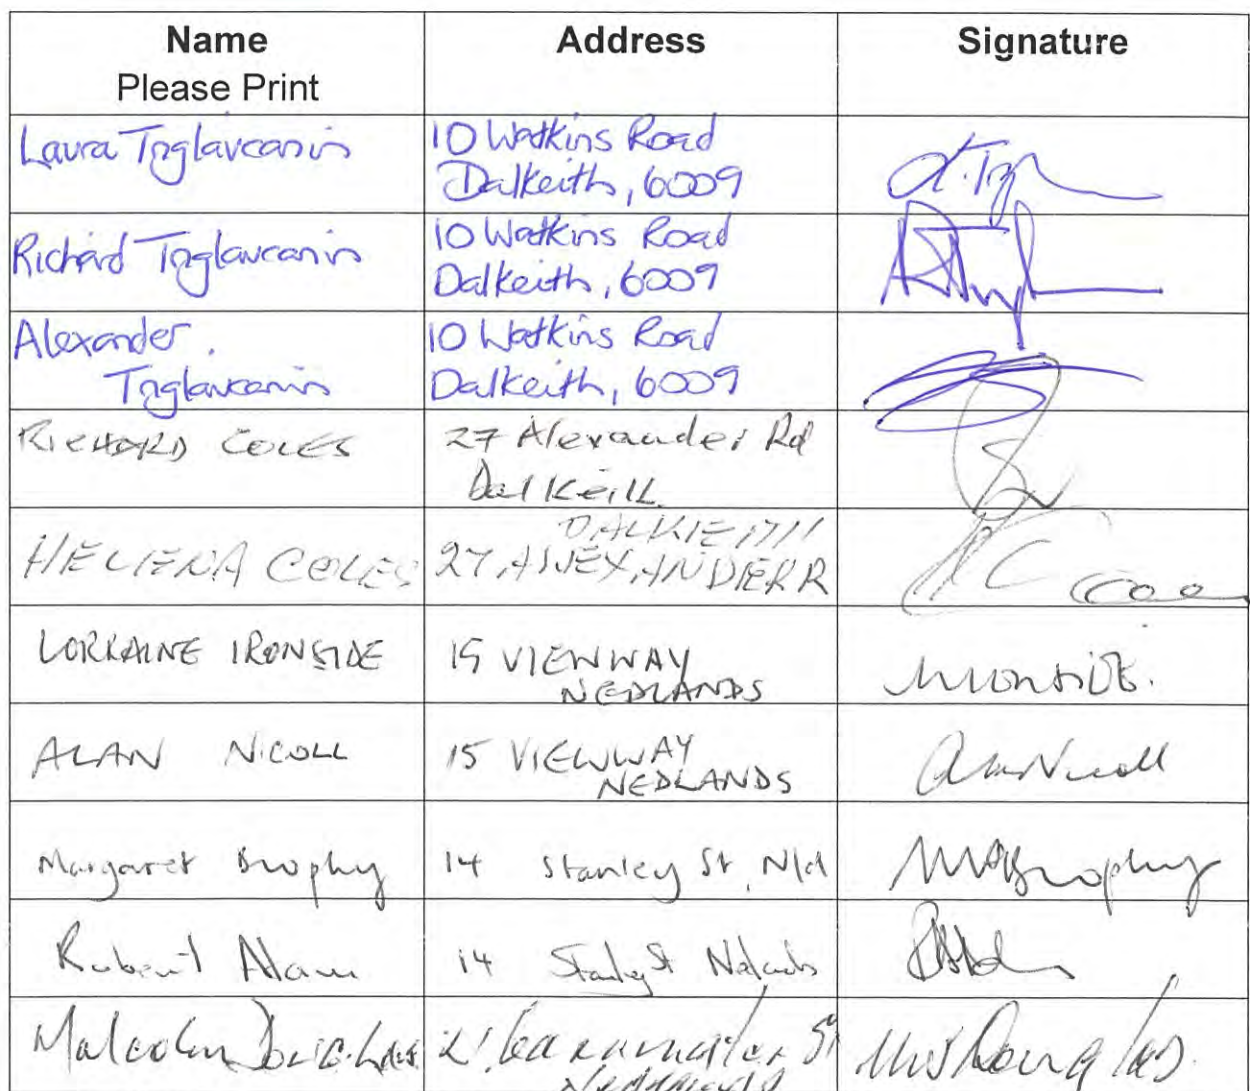 Name Address Signature
Please Print
Laura Triglavcanin 10 Watkins Road
Dalkeith, 6009
Richard Triglavcanin 10 Watkins Road
Dalkeith, 6009
Alexander 10 Watkins Road
Triglavcanin Dalkeith, 6009
RICHARD COLES 27 Alexander Rd
Dalkeith
HELENA COLES 27
LORRAINE IRONSIDE 15 VIEWWAY
NEDLANDS
ALAN NICOLL 15 VIEWWAY
NEDLANDS Alan Nicoll
Margaret Brophy 14 Stanley St, Nld MABrophy
Robert Adam 14 Stanley St Nedlands
Malcolm Douglas 21 St
Nedlands MS Douglas